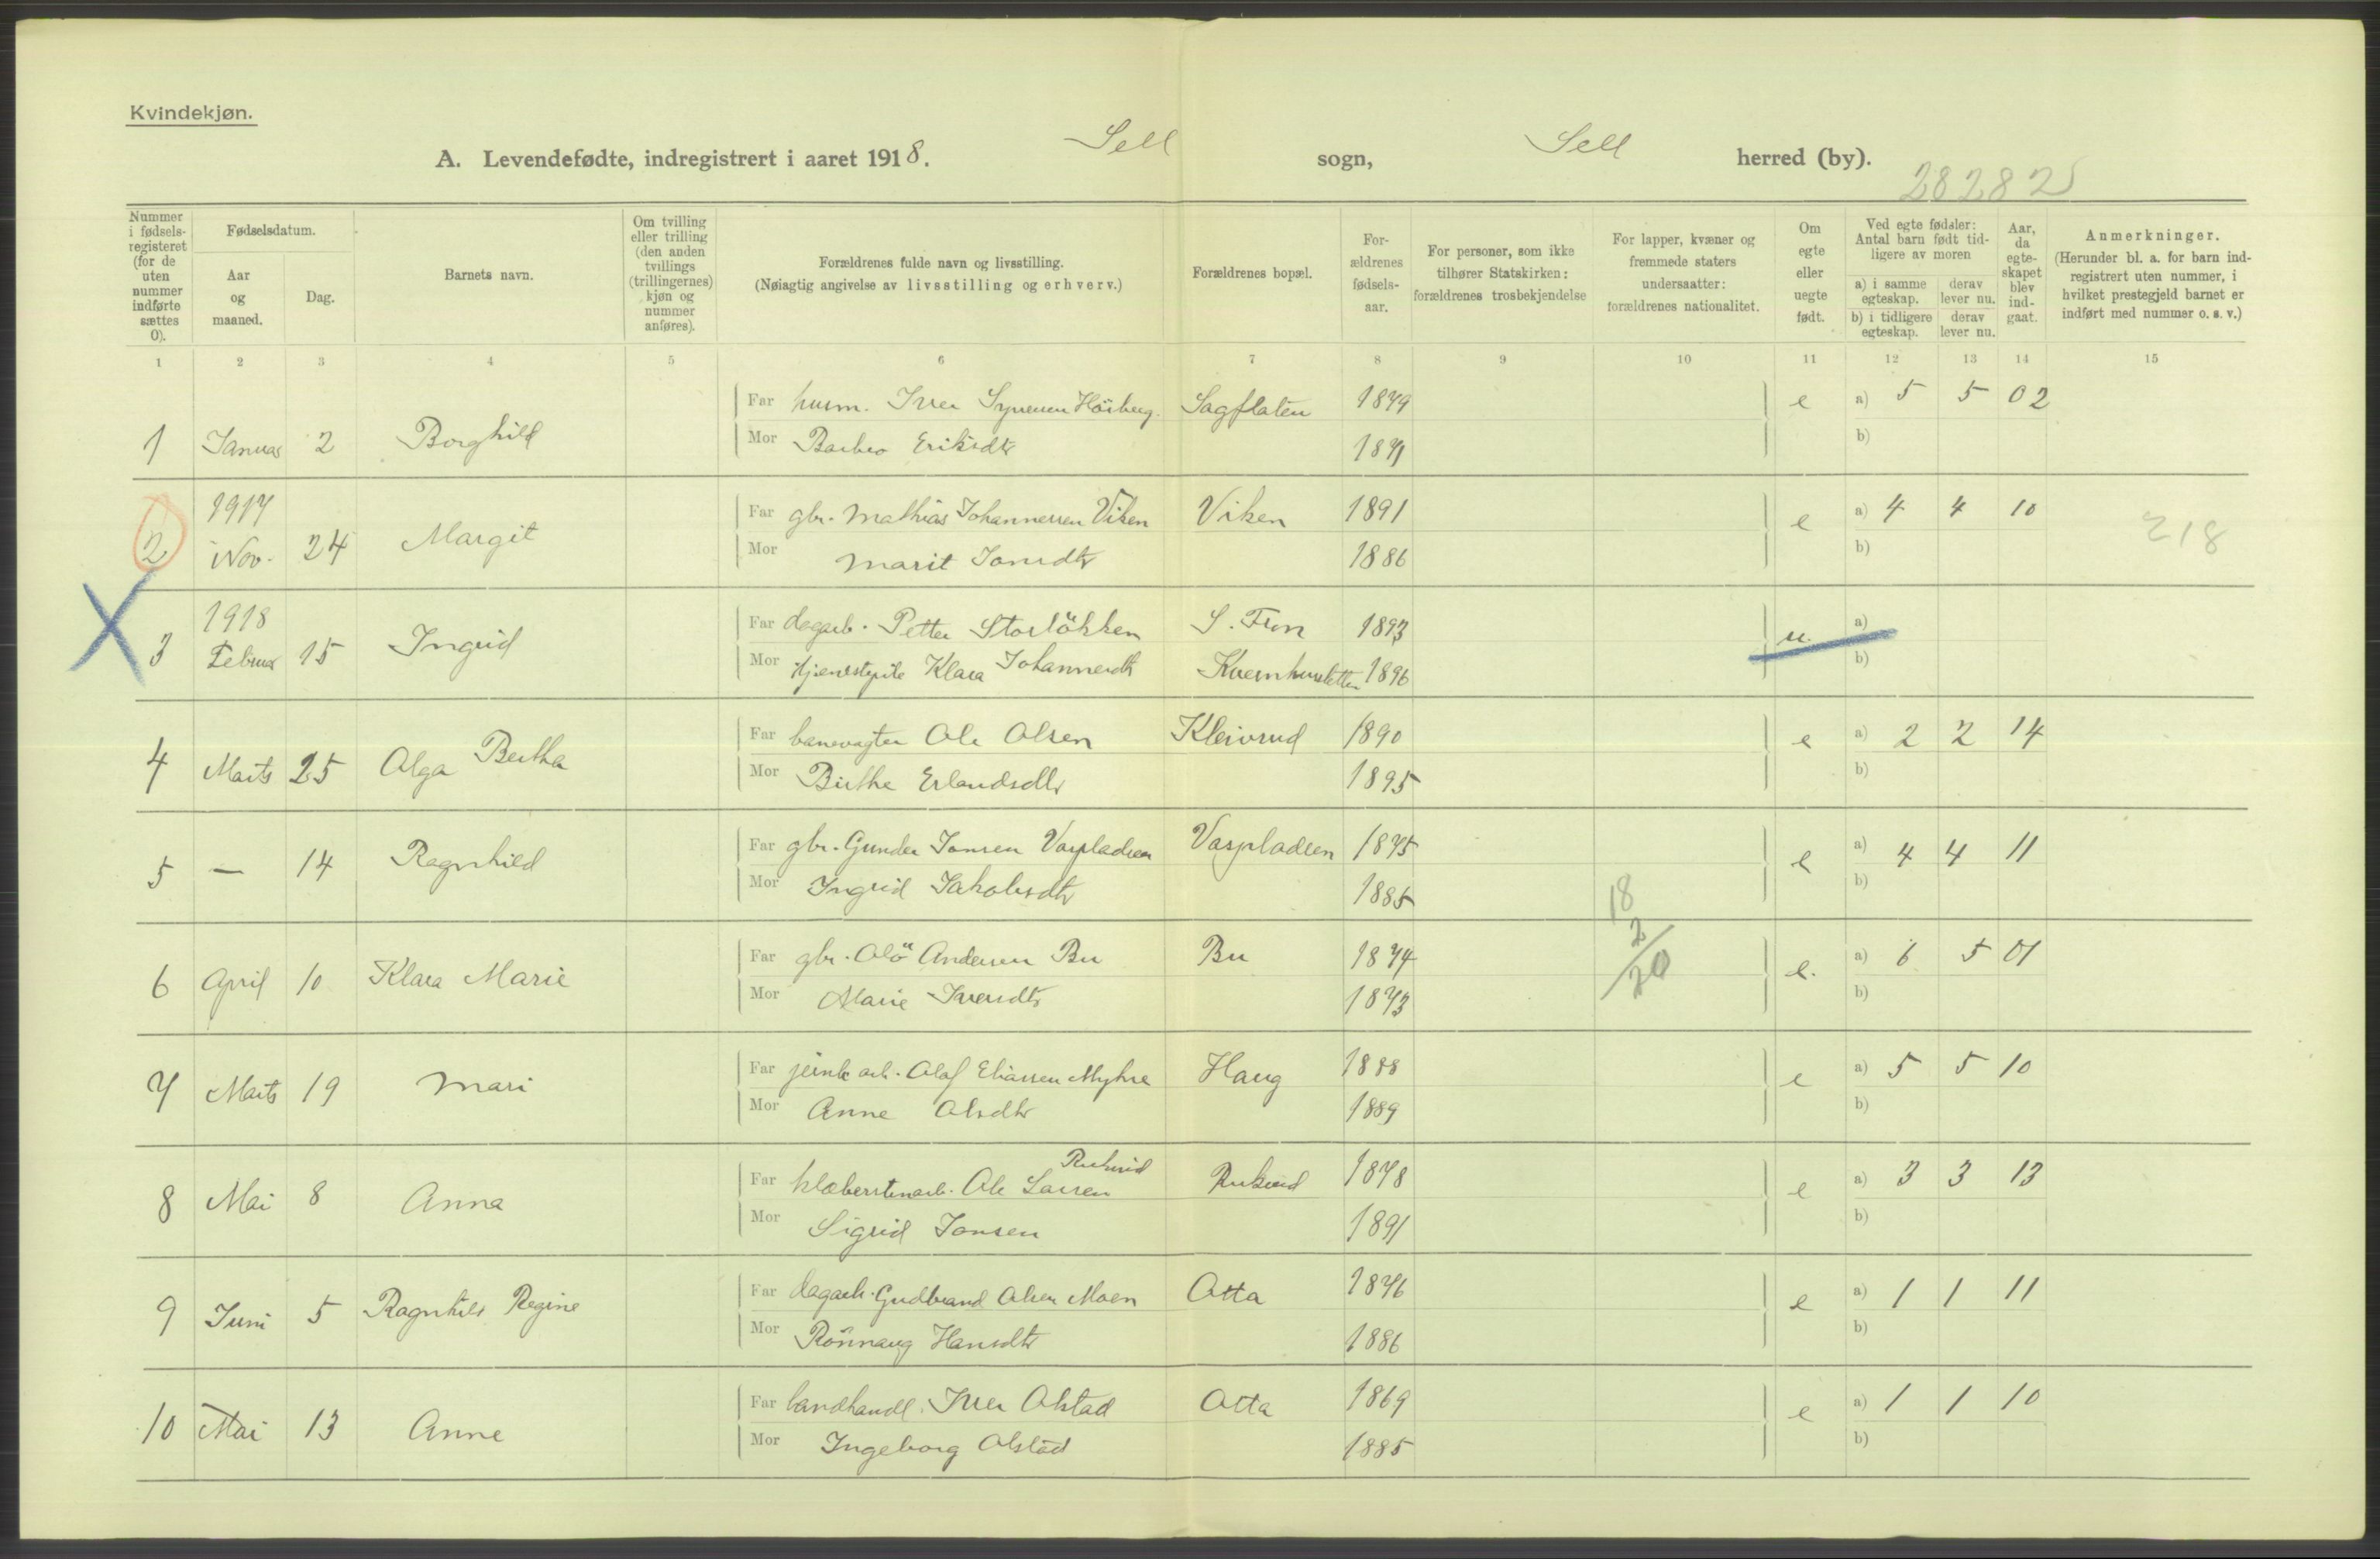 Kvindekjøn.
A. Levendefødte, indregistrert i aaret 1918. Sell sogn, Sell herred (by).
28282
Nummer i fødselsregisteret (for de uten nummer indførte sættes 0).
Fødselsdatum.
Aar og maaned.
Dag.
Barnets navn.
Om tvilling eller trilling (den anden tvillings (trillingernes) kjøn og nummer anføres).
Forældrenes fulde navn og livsstilling.
(Nøiagtig angivelse av livsstilling og erhverv.)
Forældrenes bopæl.
Forældrenes fødselsaar.
For personer, som ikke tilhører Statskirken: forældrenes trosbekjendelse
For lapper, kvæner og fremmede staters undersaatter: forældrenes nationalitet.
Om egte eller uegte født.
Ved egte fødsler: Antal barn født tidligere av moren
a) i samme egteskap.
derav lever nu.
b) i tidligere egteskap.
derav lever nu.
Aar, da egteskapet blev indgaat.
Anmerkninger.
(Herunder bl. a. for barn indregistrert uten nummer, i hvilket prestegjeld barnet er indført med nummer o. s. v.)
1 2 3 4 5 6 7 8 9 10 11 12 13 14 15
Far husm. Iver Syversen Høiberg. Sagflaten 1879 e a) 5 5 02
1 Januar 2 Borghild Mor Barbro Eriksdtr 1871 b)
1917
Far gbr. Mathias Johannessen Viken Viken 1891 e a) 4 4 10
2 Nov. 24 Margit Mor Marit Jonsdtr 1886 b)
218
1918
Far dagarb. Petter Storløkken S. Fron 1893 u. a)
3 Februar 15 Ingrid Mor tjenestepike Klara Johannesdtr Kvernhusletten 1896 b)
Far banevagter Ole Olsen Kleivrud 1890 e a) 2 2 14
4 Marts 25 Olga Bertha Mor Birthe Erlandsdtr 1895 b)
Far gbr. Gunder Jonsen Vaspladsen Vaspladsen 1875 e a) 4 4 11
5 — 14 Ragnhild Mor Ingrid Jakobsdtr 1885 b)
18
2/20
Far gbr. Ola Andersen Bu Bu 1874 e. a) 6 5 01
6 April 10 Klara Marie Mor Marie Iversdtr 1873 b)
Far jernb arb. Olaf Eliassen Myhre Haug 1888 e a) 5 5 10
7 Marts 19 Mari Mor Anne Olsdtr 1889 b)
Far klæberstenarb. Ole Larsen Ruhrud Rukrud 1878 e a) 3 3 13
8 Mai 8 Anna Mor Sigrid Jonsen 1891 b)
Far dagarb. Gudbrand Olsen Moen Otta 1876 e a) 1 1 11
9 Juni 5 Ragnhild Regine Mor Rønnaug Hansdtr 1886 b)
Far landhandl. Iver Olstad Otta 1869 e a) 1 1 10
10 Mai 13 Anne Mor Ingeborg Olstad 1885 b)